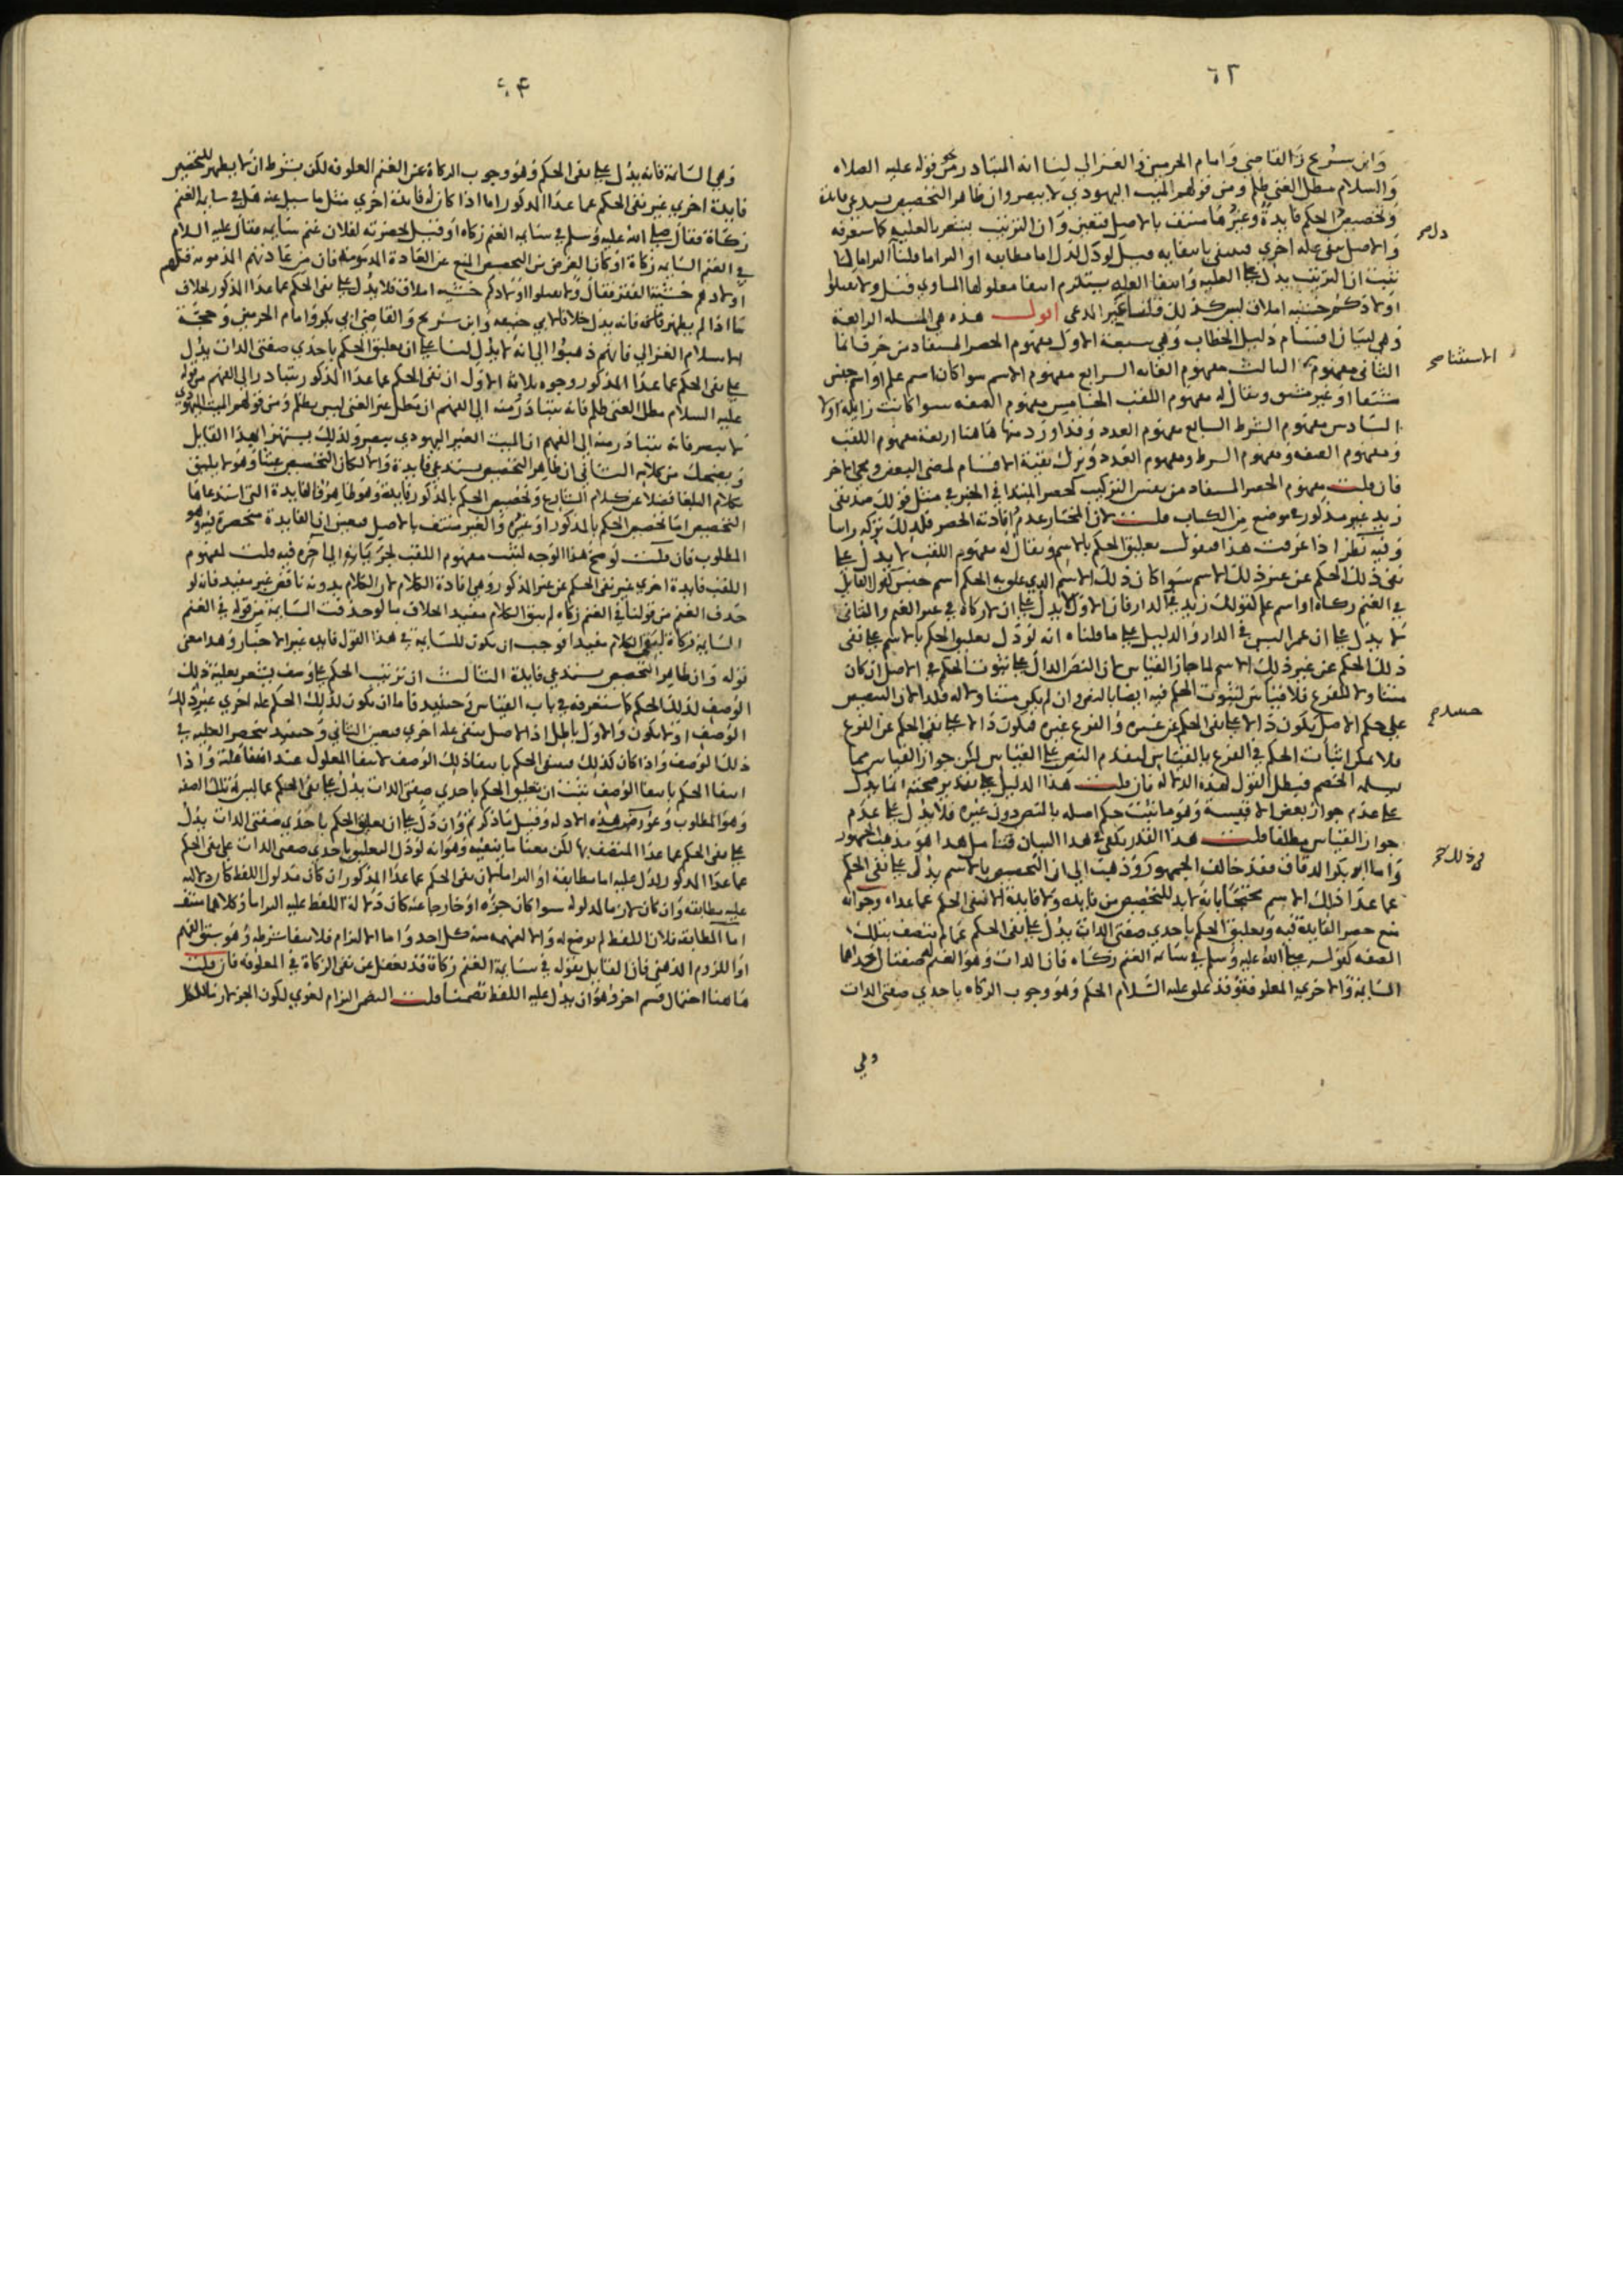 ٦٢
وابن سريج والقاضي وامام الحرمين والغزالي لينا انه المتبادر من نحو قوله عليه الصلاه
والسلام مطل الغني ظلم ومن قولهم الميت اليهودي لا يبصر وان ظاهر التخصيص يستدعي فايدة
وتخصيص الحكم فايدة وغيرها منتف بالاصل فتعين وان الترتيب يشعر بالعلية كما ستعرفه
والاصل ينفي علة اخري فينتفي بانتفايه قيل لو دل لدل اما مطابقة او التراما قلنا التراما لما
ثبت ان الترتيب يدل علي العلية وانتفا العلة يستلزم انتفا معلولها المساوي قيل ولا تقتلوا
اولادكم خشية املاق ليس كذلك قلنا غير المدعي اقول هذه هي المسله الرابعة
وهي لبيان اقسام دليل الخطاب وهي سبعة الاول مفهوم الحصر المستفاد من حرف انما
الثاني مفهوم الثالث مفهوم الغايه الرابع مفهوم الاسم سوا كان اسم علم او اسم جنس
مشتقا او غير مشتق ويقال له مفهوم اللقب الخامس مفهوم الصفه سوا كانت زايله او لا
السادس مفهوم الشرط السابع مفهوم العدد وقد اورد منها هاهنا اربعة مفهوم اللقب
ومفهوم الصفه ومفهوم الشرط ومفهوم العدد وترك بقية الاقسام لمضي البعض ويجي الاخر
فان قلت مفهوم الحصر المستفاد من نفس التركيب كحصر المبتدا في الخبر في مثل قولك صديقي
زيد غير مذكور في موضع من الكتاب قلت لان المختار عدم افادته الحصر فلذلك تركه راسا
وفيه نظر اذا عرفت هذا فنقول تعليق الحكم بالاسم ويقال له مفهوم اللقب لا يدل علي
نفي ذلك الحكم عن غير ذلك الاسم سوا كان ذلك الاسم الذي علق به الحكم اسم جنس كقول القايل
في الغنم زكاة او اسم علم كقولك زيد في الدار فان الاول لا يدل علي ان لا زكاة في غير الغنم والثاني
لا يدل علي ان عمرا ليس في الدار والدليل علي ما قلناه انه لو دل تعليق الحكم بالاسم علي نفي
ذلك الحكم عن غير ذلك الاسم لما جاز القياس لان النص الدال علي ثبوت الحكم في الاصل ان كان
متناولا للفرع فلا قياس لثبوت الحكم فيه ايضا بالنص وان لم يكن متناولا له فلدلالة التنصيص
علي حكم الاصل يكون دالا علي نفي الحكم عن غيره والفرع غيره فيكون دالا علي نفي الحكم عن الفرع
فلا يمكن اثبات الحكم في الفرع بالقياس لتقدم النص علي القياس لكن جواز القياس مما
يسلمه الخصم فيبطل القول بهذه الدلاله فان قلت هذا الدليل علي تقدير صحته انما يدل
علي عدم جواز بعض الاقيسة وهو ما ثبت حكم اصله بالنص دون غيره فلا يدل علي عدم
جواز القياس مطلقا قلت هذا القدر يكفي في هذا البيان فتامل هذا هو مذهب الجمهور
واما ابو بكر الدقاق فقد خالف الجمهور وذهب الي ان التخصيص بالاسم يدل علي نفي الحكم
عما عدا ذلك الاسم محتجا بانه لا بد للتخصيص من فايده ولا فايدة الا نفي الحكم عما عداه وجوابه
منع حصر الفايدة فيه وتعليق الحكم باحدي صفتي الذات يدل علي نفي الحكم عما لم يتصف بتلك
الصفه كقوله صلي الله عليه وسلم في سايمة الغنم زكاه فان الذات وهو الغنم لها صفتان احداهما
السايمة والاخري المعلوفة وقد علق عليه السلام الحكم وهو وجوب الزكاه باحدي صفتي الذات
وهي
الاستثنا صح
وهي السايمة فانه يدل علي نفي الحكم وهو وجوب الزكاة عن الغنم العلوفه لكن بشرط ان لا يظهر للتخصيص
فايدة اخري غير نفي الحكم عما عدا المذكور اما اذا كان له فايدة اخري مثل ما سيل عنه هل في سايمة الغنم
زكاة فقال صلي الله عليه وسلم في سايمه الغنم زكاه او قيل بحضرته لفلان غنم سايمه فقال عليه السلام
في الغنم السايمه زكاة او كان الغرض من التخصيص المنع عن العادة المذمومة فان من عادتهم المذمومه قتلهم
اولادهم خشية الفقر فقال ولا تقتلوا اولادكم خشيه املاق فلا يدل علي نفي الحكم عما عدا المذكور بخلاف
ما اذا لم يظهر فايدة فانه يدل خلافا لابي حنيفه وابن سريج والقاضي ابي بكر وامام الحرمين وحجة
الاسلام الغزالي فانهم ذهبوا الي انه لا يدل لنا علي ان تعليق الحكم باحدي صفتي الذات يدل
علي نفي الحكم عما عدا المذكور وجوه ثلاثة الاول ان نفي الحكم عما عدا المذكور يتبادر الي الفهم من قوله
عليه السلام مطل الغني ظلم فانه يتبادر منه الي الفهم ان مطل غير الغني ليس بظلم ومن قولهم الميت اليهودي
لا يبصر فانه يتبادر منه الي الفهم ان الميت الغير اليهودي يبصر ولذلك يستهزا بهذا القايل
ويضحك من كلامه الثاني ان ظاهر التخصيص يستدعي فايدة والا لكان التخصيص عبثا وهو لا يليق
بكلام البلغا فضلا عن كلام الشارع وتخصيص الحكم بالمذكور فايدة وهو ظاهر فالفايدة التي استدعاها
التخصيص اما تخصيص الحكم بالمذكور او غيره والغير منتف بالاصل فتعين ان الفايدة منحصرة فيه وهو
المطلوب فان قلت لو صح هذا الوجه لثبت مفهوم اللقب لجريانه الي اخره فيه قلت لمفهوم
اللقب فايدة اخري غير نفي الحكم عن غير المذكور وهي افادة الكلام لان الكلام بدونه ناقص غير مفيد فانه لو
حذف الغنم من قولنا في الغنم زكاه لم يبق الكلام مفيدا بخلاف ما لو حذفت السايمة من قوله في الغنم
السايمه زكاة لبقي الكلام مفيدا فوجب ان يكون للسايمة في هذا القول فايده غير الاخبار وهذا معني
قوله وان ظاهر التخصيص يستدعي فايدة الثالث ان ترتيب الحكم علي وصف يشعر بعلية ذلك
الوصف لذلك الحكم كما ستعرفه في باب القياس وحينيذ فاما ان يكون لذلك الحكم علة اخري غير ذلك
الوصف او لا يكون والاول باطل اذ الاصل ينفي علة اخري فتعين الثاني وحينيذ تنحصر العلية في
ذلك الوصف واذا كان كذلك فينتفي الحكم بانتفا ذلك الوصف لانتفا المعلول عند انتفا علته واذا
انتفا الحكم بانتفا الوصف ثبت ان تعليق الحكم باحدي صفتي الذات يدل علي نفي الحكم عما ليس له تلك الصفه
وهو المطلوب وعورض هذه الادله وقيل ما ذكرتم وان دل علي ان تعليق الحكم باحدي صفتي الذات يدل
علي نفي الحكم عما عدا المتصف بها لكن معنا ما ينفيه وهو انه لو دل التعليق باحدي صفتي الذات علي نفي الحكم
عما عدا المذكور لدل عليه اما مطابقة او التراما لان نفي الحكم عما عدا المذكور ان كان مدلول اللفظ كان دلالته
عليه مطابقه وان كان لازما لمدلوله سوا كان جزؤه او خارجا عنه كان دلالة اللفظ عليه التراما وكلاهما منتف
اما المطابقه فلان اللفظ لم يوضع له والا لفهمه منه كل احد واما الالتزام فلانتفا شرطه وهو سبق الفهم
او اللزوم الذهني فان القايل بقوله في سايمة الغنم زكاة قد يغفل عن نفي الزكاة في المعلوفه فان قلت
هاهنا احتمال قسم اخر وهو ان يدل عليه اللفظ تضمنا قلت التضمن التزام لغوي لكون الجزء لازما للكل